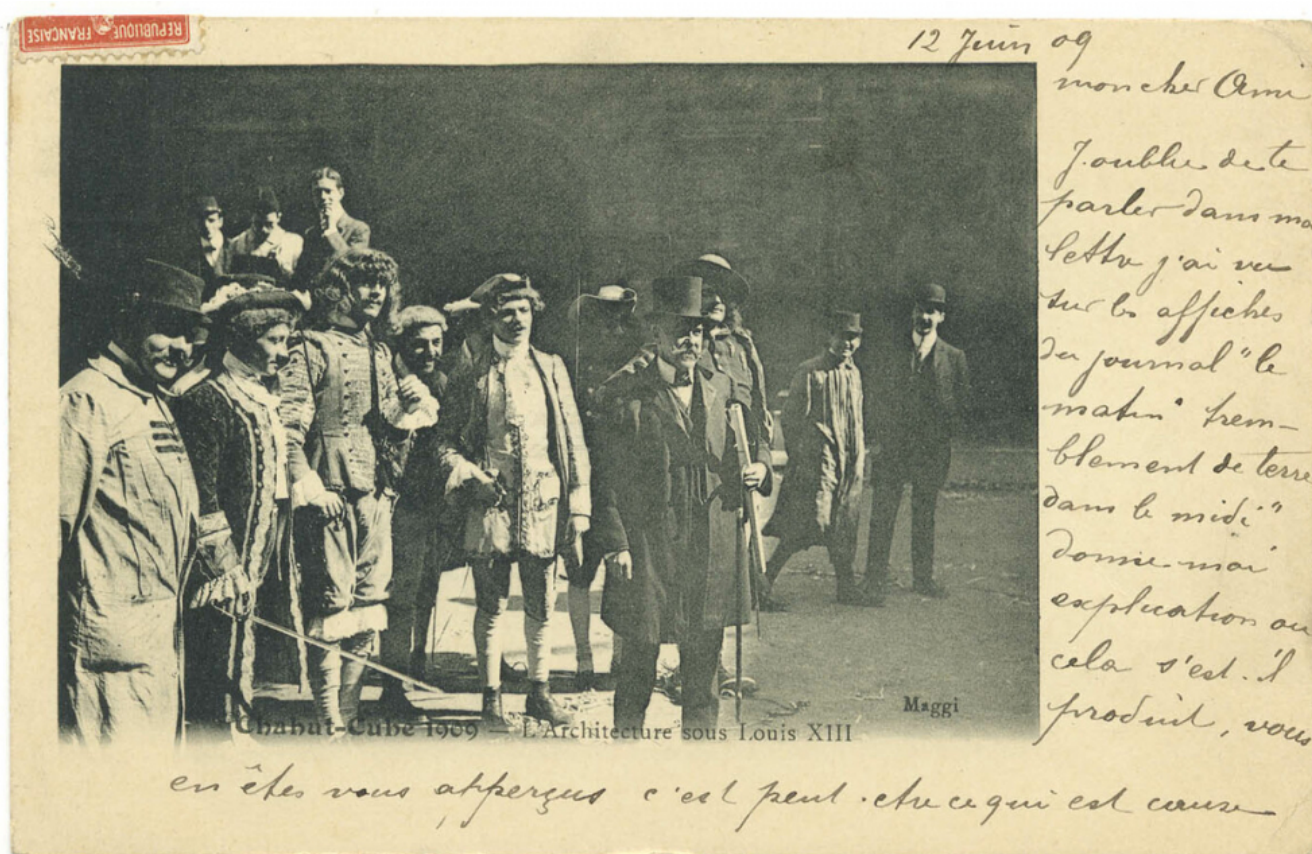 REPUBLIQUE FRANÇAISE
12 Juin 09
mon cher Ami
J'oublie de te
parler dans ma
lettre j'ai vu
sur les affiches
du journal "le
matin" trem-
blement de terre
dans le midi"
donne moi
explication ou
cela s'est-il
produit, vous
en êtes vous apperçus c'est peut-etre ce qui est cause
Maggi
Chahut-Cube 1909 — L'Architecture sous Louis XIII